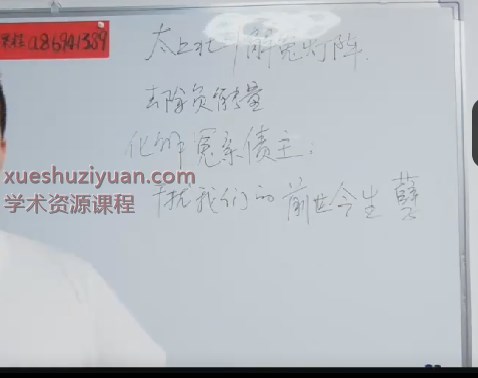 太上北斗解冤灯阵.
去除负能量
化解冤亲债主.
干扰我们的前世今生 孽
xueshuziyuan.com
学术资源课程